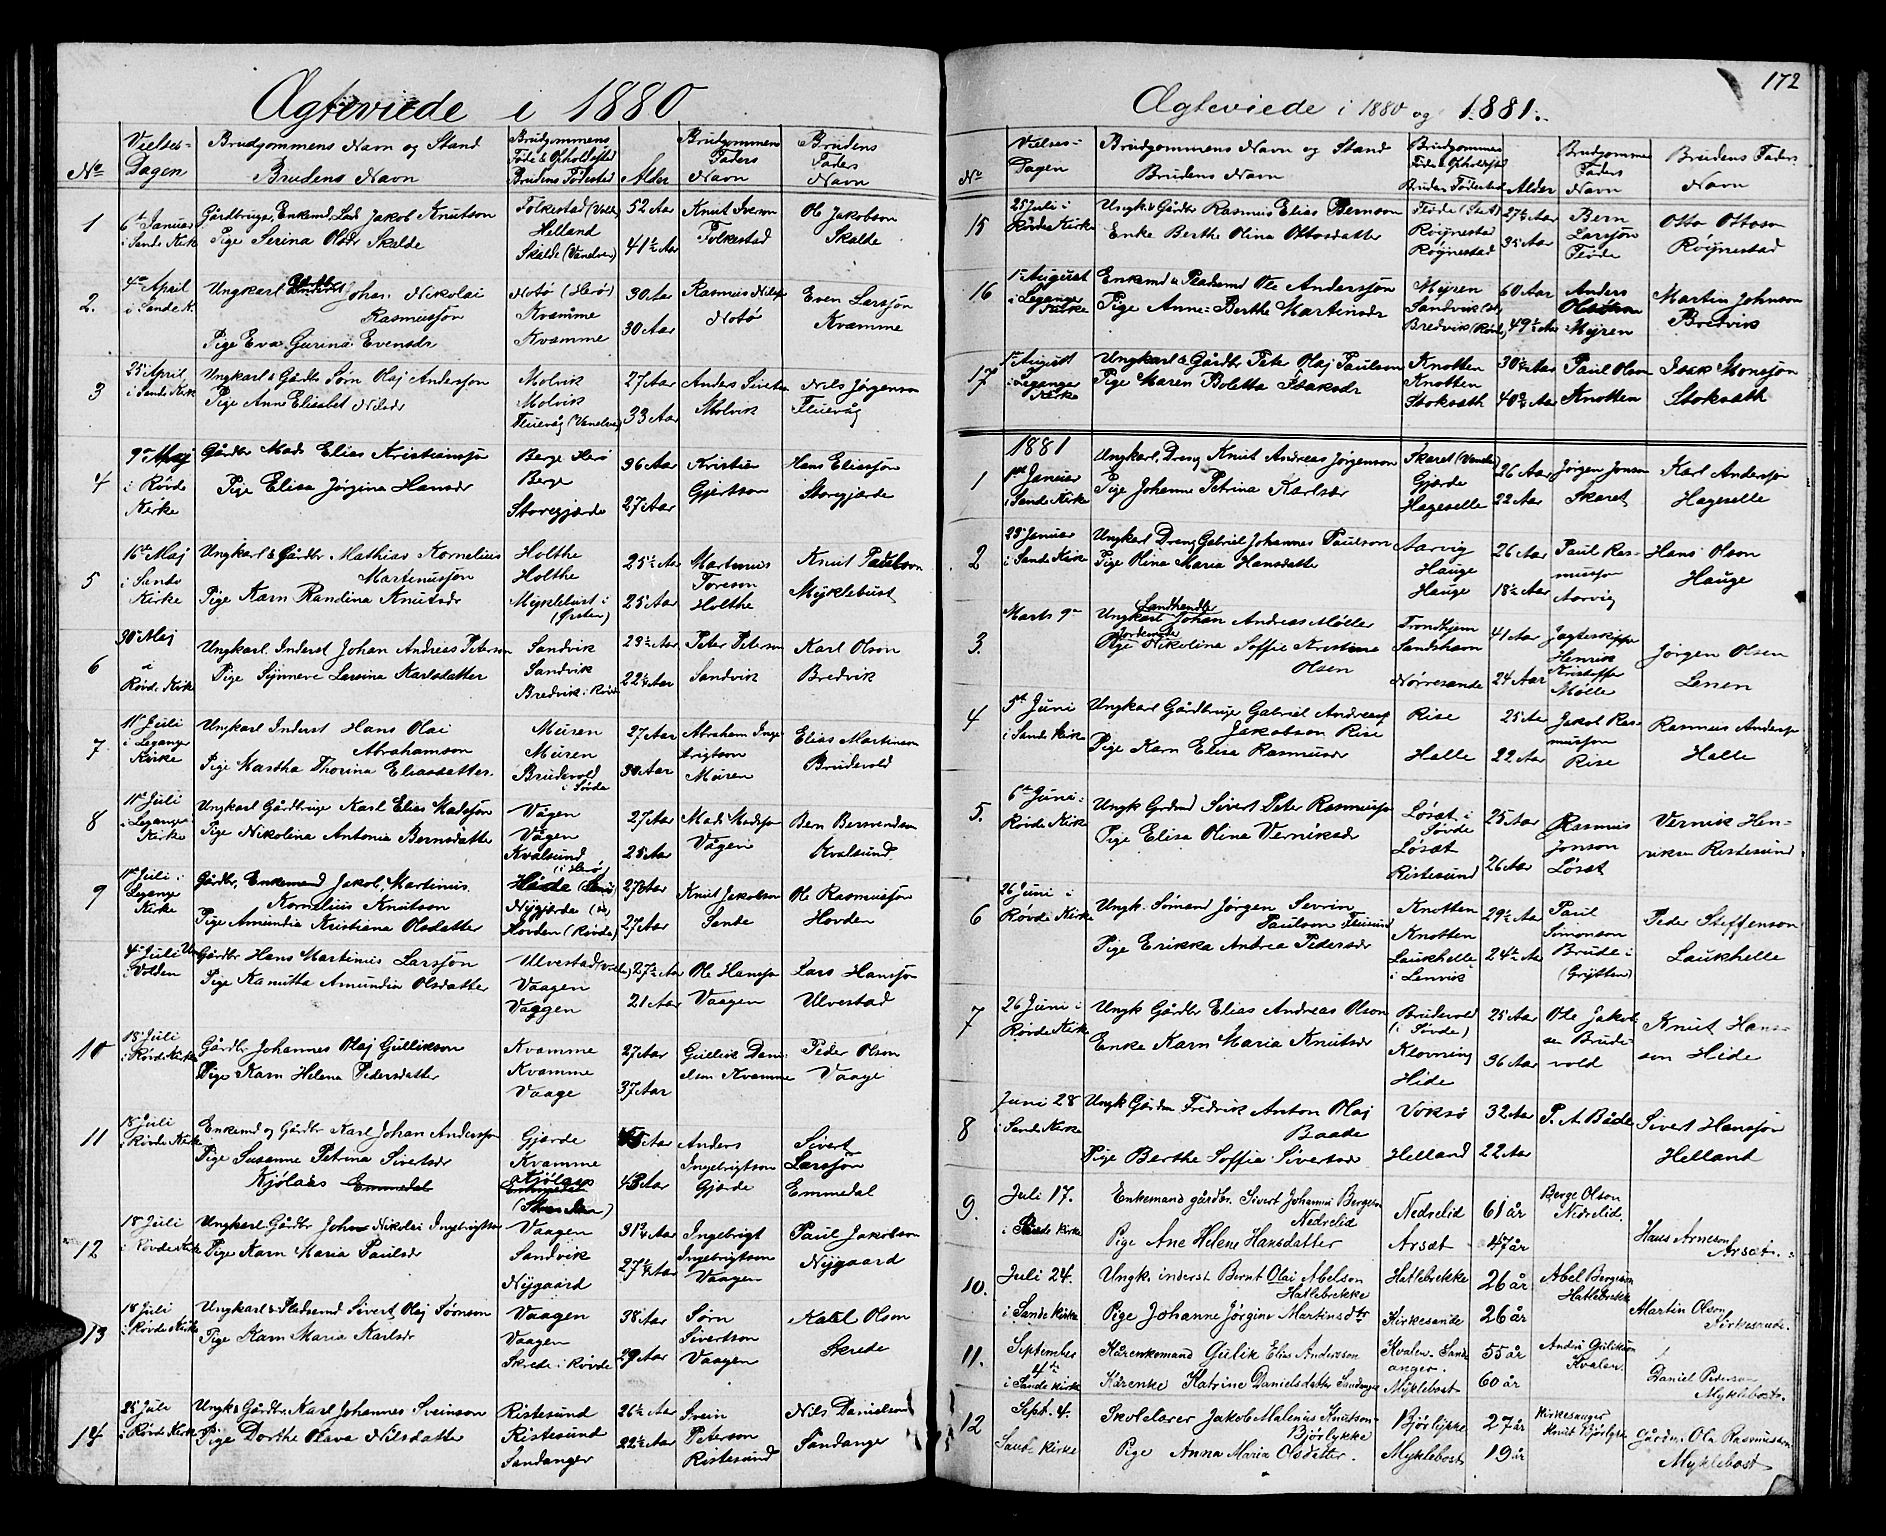 Ægteviede i 1880
No
Vielses-Dagen
Brudgommens Navn og Stand
Brudens Navn
Brudgommens Føde & Opholdssted
Brudens Fødested
Alder
Brudgommens Faders Navn
Brudens Faders Navn
1
6te Januar i Sande Kirke
Gårdbruger, Enkemd, Lods Jakob Knutson
Pige Serina Olsdr Skelde
Folkestad (Volden)
Helland
Skelde (Vandven)
52 Aar
41½ Aar
Knut Iverson Folkestad
Ole Jakobson Skelde
2.
4de April i Sande K.
Ungkarl Johan Nikolai Rasmussøn
Pige Eva Gurina Evensdr
Notø (Herø)
Kvamme
Kvamme
30 Aar
30 Aar
Rasmus Nilsen Notø
Even Larssøn Kvamme
3
25 April i Sande Kirk
Ungkarl & Gårdbr Sørn Olaj Anderssøn
Pige Anne Elisabet Nilsdr
Molvik
Molvik
Fleievåg (Vandven)
27 Aar
33 Aar
Anders Sivertsen Molvik
Nils Jørgenson Fleievåg
4
9de Maj i Røvde Kirke
Gårdbr Mads Elias Kristianssøn
Pige Elisa Jørgina Hansdr
Berge Herø
Berge
Storegjerde
36 Aar
27 Aar
Kristian Gjertson
Hans Eliassøn Storgjærde
5
16de Maj i Sande Kirke
Ungkarl & Gårdbr Mathias Kornelius Martinussøn
Pige Karn Randina Knutsdr
Holthe
Holthe
Myklebust i (Ørsten)
25½ Aar
25 Aar
Martinus Toreson Holthe
Knut Paulson Myklebust
6
30te Maj i Røvde Kirk
Ungkarl Inderst Johan Andreas Peterson
Pige Synneve Larsina Karlsdatter
Sandvik
Sandvik
Bredvik i Røvde
23½ Aar
22½ Aar
Peter Peterson Sandvik
Karl Olson Bredvik
7
11te Juli i Leganger Kirke
Ungkarl Inderst Hans Olai Abrahamson
Pige Martha Thorina Eliasdatter
Muren
Muren
Brudevold i Søvde
27 Aar
30 Aar
Abraham Ingebrigtson Muren
Elias Martinson Brudevold
8
11te Juli i Leganger Kirke
Ungkarl Gårdbruger Karl Elias Madssøn
Pige Nikolina Antonia Bernsdatter
Vågen
Vågen
Kvalsund (i Herø)
27 Aar
25 Aar
Mads Madssøn Vågen
Bern Berventson Kvalsund
9
11te Juli i Leganger Kirke
Gårdbr, Enkemand Jakob Martinus Kornelius Knutson
Pige Amundia Kristiana Olsdatter
Nygjerde
Hovden (Røvde)
27 Aar
27 Aar
Knut Jakobson Sande
Ole Rasmussøn Hovden
4de Juli i Volden
Gårdbr Hans Martinus Larssøn
Pige Kanutta Amundia Olsdatter
Ulvestad (Volden)
Vaagen
Vaagen
27½ Aar
21 Aar
Ole Hanssøn Vaagen
Lars Hanssøn Ulvestad
10
18 Juli i Røvde Kirke
Gårdbr Johannes Olaj Gullikson
Pige Karn Helena Pedersdatter
Kvamme
Kvamme
Vaage
27 Aar
37 Aar
Gullik Danielsen Kvamme
Peder Olson Vaage
11
18 Juli i Røvde Kirke
Enkemd og Gårdbr Karl Johan Anderssøn
Pige Susanne Petrina Sivertsdr
Kjølaas Emmedal
Gjerde
Kvamme
Kjølaas
Emmedal
45 Aar
43 Aar
Anders Ingebrigtson Gjerde
Sivert Larssøn Emmedal
12
18 Juli i Røvde Kirke
Ungkarl Gårdbr Johan Nikolai Ingebrigtson
Pige Karn Maria Paulsdr
Vaagen
Sandvik
Nygaard
31¾ Aar
27¼ Aar
Ingebrigt Ingebrigtson Vaagen
Paul Jakobson Nygaard
13
18 Juli i Røvde Kirke
Ungkarl & Pladsemd Sivert Olaj Sørnson
Pige Karn Maria Karlsdr
Vaagen
Vaagen
Skrede i Røvde
38 Aar
29 Aar
Sørn Sivertson Vaagen
Karl Olson Skrede
14
25 Juli i Røvde Kirke
Ungk & Gårdbr Karl Johannes Sveinson
Pige Dorthe Olava Nilsdatter
Ristesund
Ristesund
Sandanger
26½ Aar
22½ Aar
Svein Peterson Ristesund
Nils Danielson Sandanger
172
Ægteviede i 1880 og 1881.
No
Vielses-Dagen
Brudgommens Navn og Stand
Brudens Navn
Brudgommens Føde & Opholdssted
Brudens Fødested
Alder
Brudgommens Faders Navn
Brudens Faders Navn
15
25 Juli i Røvde Kirke
Ungk & Gårdbr Rasmus Elias Bernson
Enke Berthe Olina Ottosdatter
Fløde
Røgnestad
Røgnestad
27½ Aar
35 Aar
Bern Larssøn Fløde
Otto Ottoson Røgnestad
16
1ste August i Leganger Kirke
Enkemd & Pladsemd Ole Anderssøn
Pige Anne-Berthe Martinsdr
Myren
Sandvik
Bredvik (Røvde)
60 Aar
49½ Aar
Anders Olsson Myren
Martin Johnson Bredvik
17
1ste August i Leganger Kirke
Ungkarl & Gårdbr Peter Olaj Paulson
Pige Maren Boletta Isaksdr
Knotten
Knotten
Stoksæth
30½ Aar
40¾ Aar
Paul Olson Knotten
Isak Monssøn Stoksæth
1881
1
1ste Januar i Sande Kirke
Ungkarl, Dreng Knut Andreas Jørgenson
Pige Johanne Petrina Karlsdr
Skaret (Vandven)
Gjærde
Hageselle
26 Aar
22 Aar
Jørgen Jonson Skaret
Karl Anderssøn Hageselle
2
23 Januar i Sande Kirk
Ungkarl Dreng Gabriel Johannes Paulson
Pige Olina Maria Hansdatter
Aarvig
Hauge
Hauge
26 Aar
18½ Aar
Paul Rasmussøn Aarvig
Hans Olson Hauge
3.
Marts 9de
Landhandler
Ungkarl Johan Andreas Møller
Jordemoder
Pige Nikolina Soffie Kristine Olsen
Trondhjem
Sandshavn
Nørresande
41 Aar
24 Aar
Jagteskipper Henrik Kristoffer Møller
Jørgen Olsen Lenen
4
5te Juni i Sande Kirk
Ungkarl Gårdbruger Gabriel Andreas Jakobson Rise
Pige Karn Elisa Rasmusdr
Rise
Halle
25 Aar
22 Aar
Jakob Rasmussøn Rise
Rasmus Anderssøn Halle
5.
6te Juni i Røvde Kirke
Ungk Grdmd Sivert Peter Rasmussøn
Pige Elisa Olina Verniksdr
Løsæt i Søvde
Løsæt
Ristesund
25 Aar
26 Aar
Rasmus Jonson Løsæt
Vernik Henriksen Ristesund
6
26 Juni i Røvde Kirke
Ungk. Sømand Jørgen Sevrin Paulson Fluisund
Pige Erikka Andrea Pedersdr
Knotten
Knotten
Laukhelle i Lenvik
29½ Aar
24½ Aar
Paul Simonson Brude i (Grytten)
Peder Steffenson Laukhelle
7
26 Juni i Røvde Kirke
Ungk Gårdbr Elias Andreas Olson
Enke Karn Maria Knutsdr
Brudevold (i Søvde)
Klovning
Hide
25 Aar
36 Aar
Ole Jakobsen Brudevold
Knut Hansson Hide
8
Juni 28 i Sande Kirke
Ungk Gårdm Fredrik Anton Olaj Baade
Pige Berthe Soffia Sivertsdr
Voksø
Helland
32 Aar
22 Aar
P. A. Både
Sivert Hanssøn Helland
9.
Juli 17. i Sande Kirke
Enkemand gårdbr. Sivert Johannes Bergeson Nedrelid
Pige Ane Helene Hansdatter
Nedrelid
Arsæt
61 år
47 år
Berge Olson Nedrelid.
Hans Arneson Arsæt.
10.
Juli 24. i Sande Kirke
Ungk. inderst Bernt Olai Abelson Hatlebrekke
Pige Johanne Jørgine Martinsdtr
Hatlebrekke
Kirkesande
26 år
26 år
Abel Bergeson Hatlebrekke
Martin Olson Kirkesande.
11.
September 4de i Sande Kirke
Kårenkemand Gulik Elias Andersson
Kårenke Katrine Danielsdatter Sandanger
Kvalen Sandanger.
Myklebost
55 år
60 år
Anders Gulikson Kvalen.
Daniel Pederson Myklebost.
12
Sept. 4. Sande Kirke
Skolelærer Jakob Malenius Knutson Bjørlykke
Pige Anna Maria Olsdatter.
Bjørlykke
Myklebost
27 år
19 år
Kirkesanger Knut Bjørlykke
Gårdm. Ole Rasmusson Myklebost